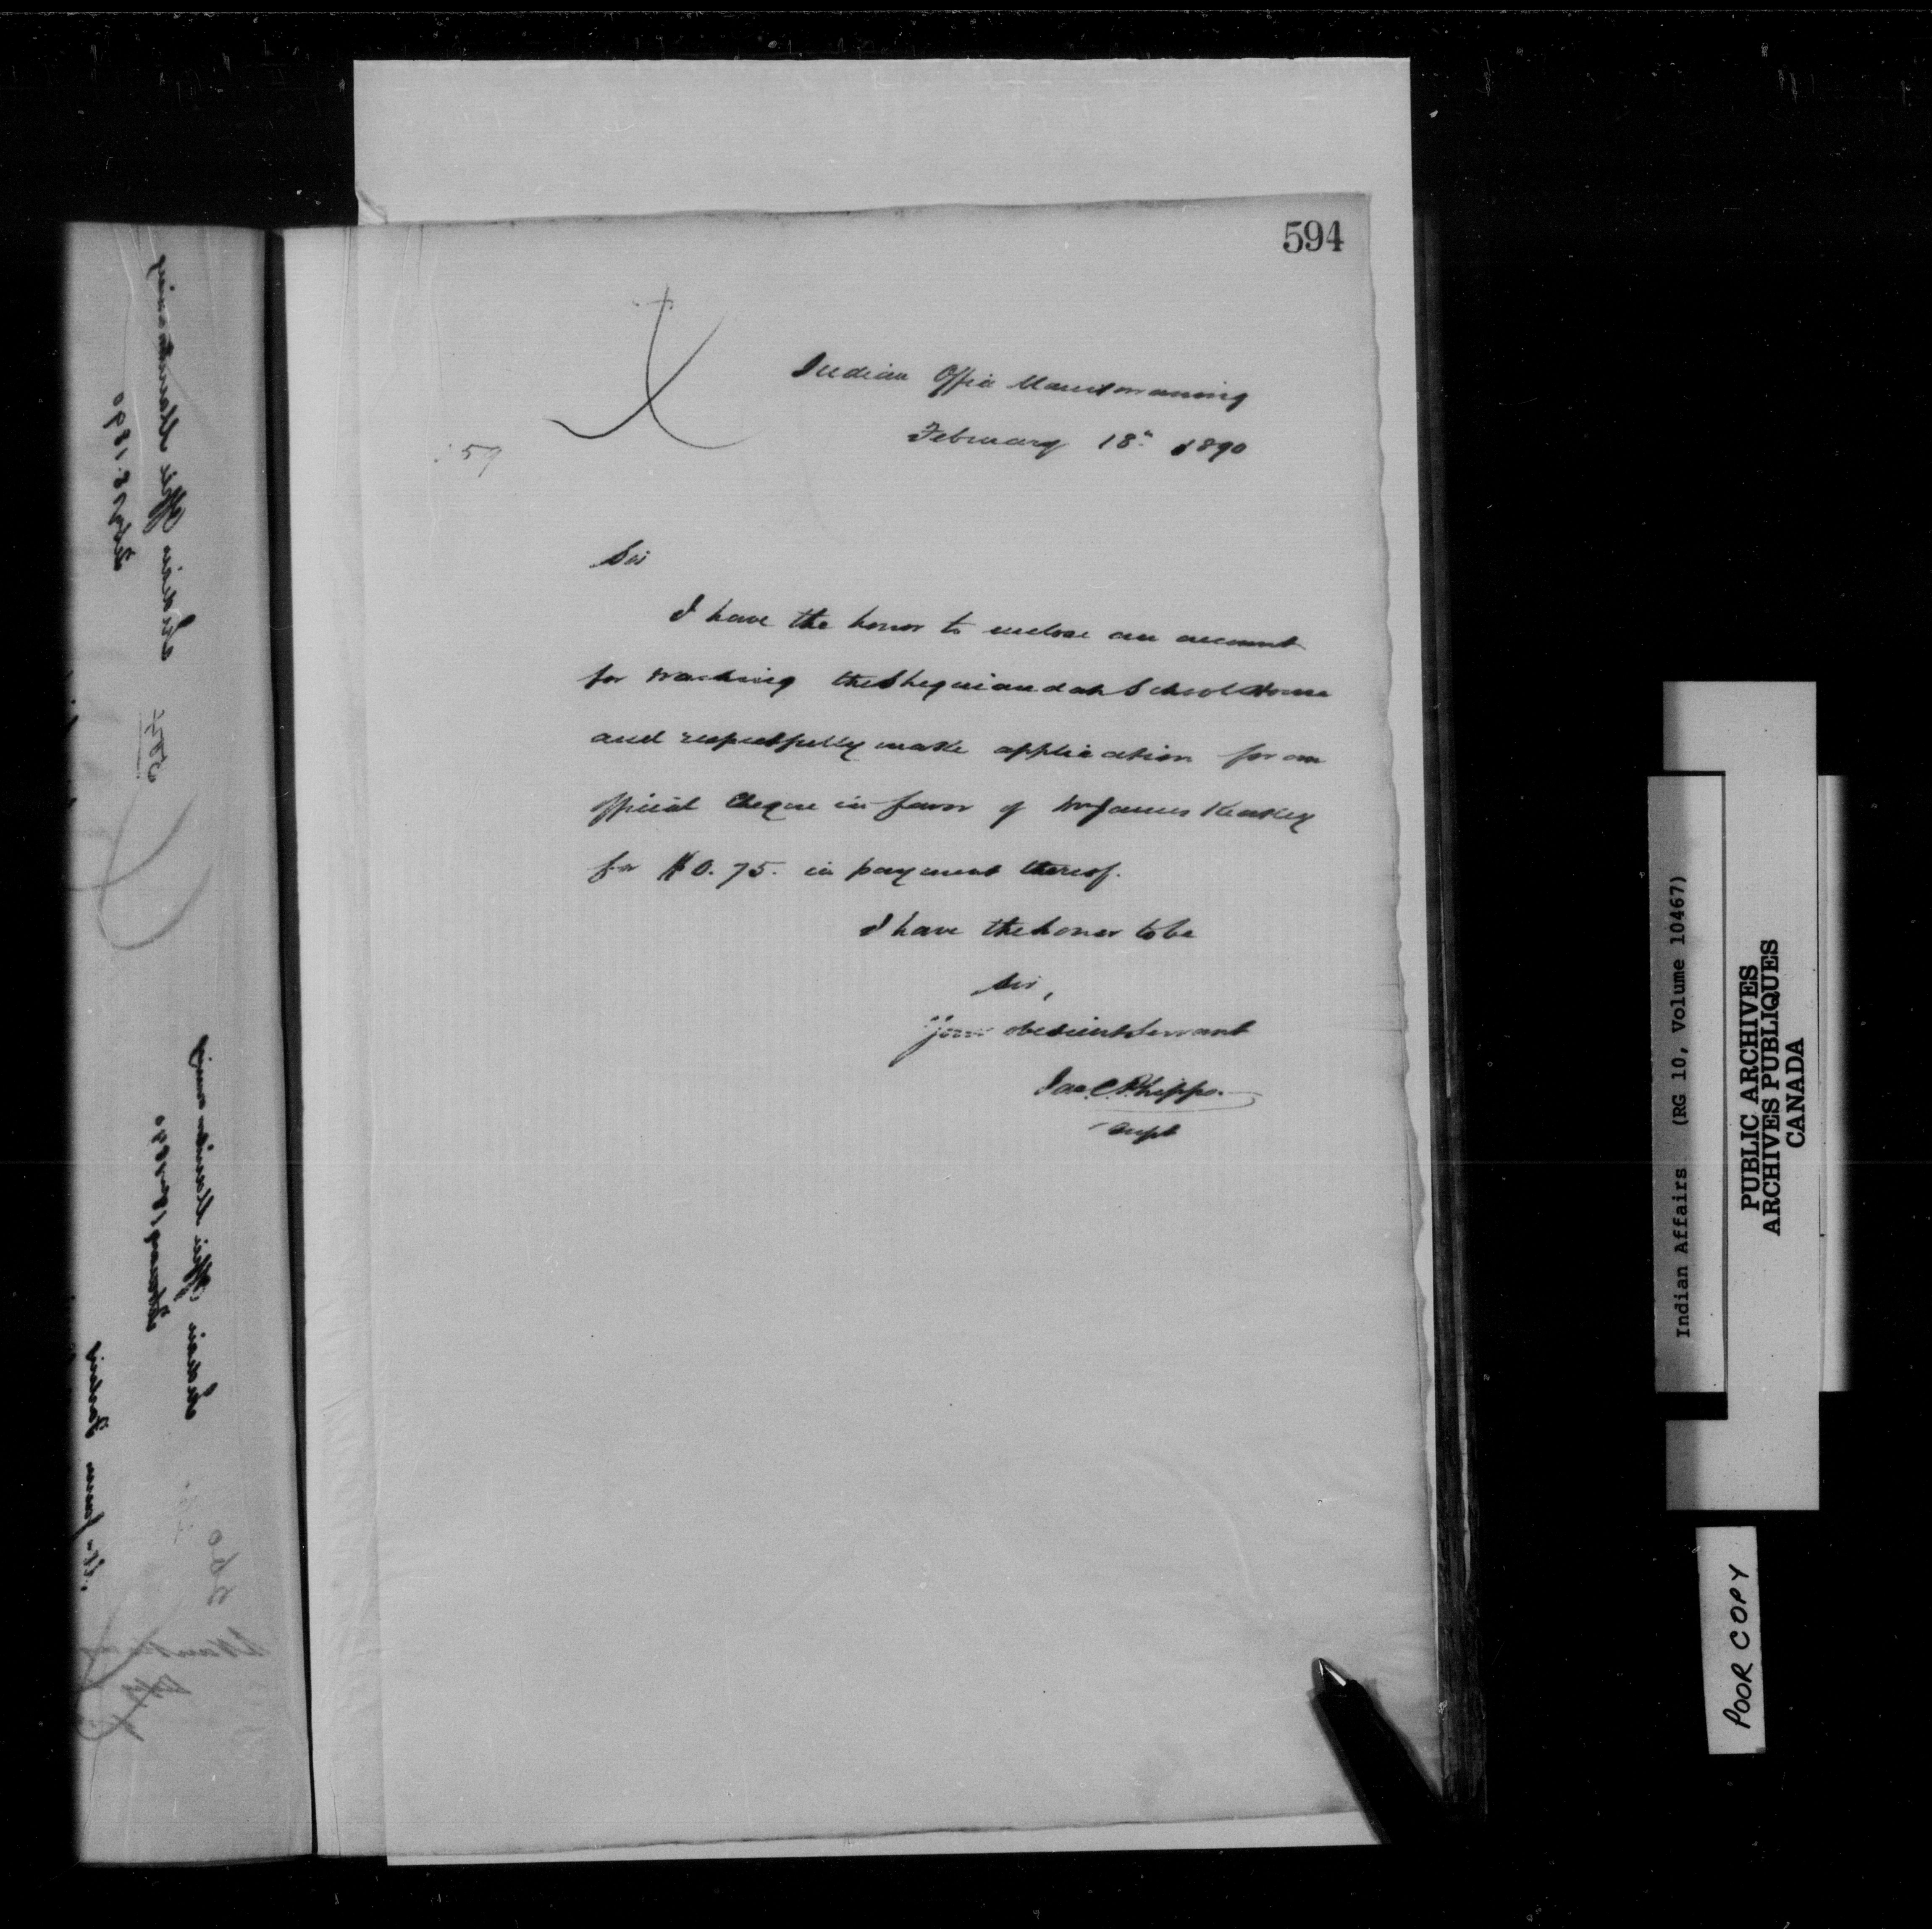 594
Indian Office Manitowaning
February 18th 1890
59
Sir
I have the honor to enclose an account
for washing the Sheguiandah School House
and respectfully make application for an
official Cheque in favor of Mr James Keatley
for $0.75. in payment thereof.
I have the honor to be
Sir,
Your obedient Servant
Jas. C. Phipps.
Supt
Indian Office Manitowaning
Feby 18. 1890
584
Indian Office Manitowaning
February 18th 1890
260
Indian Affairs (RG 10, Volume 10467)
PUBLIC ARCHIVES
ARCHIVES PUBLIQUES
CANADA
POOR COPY